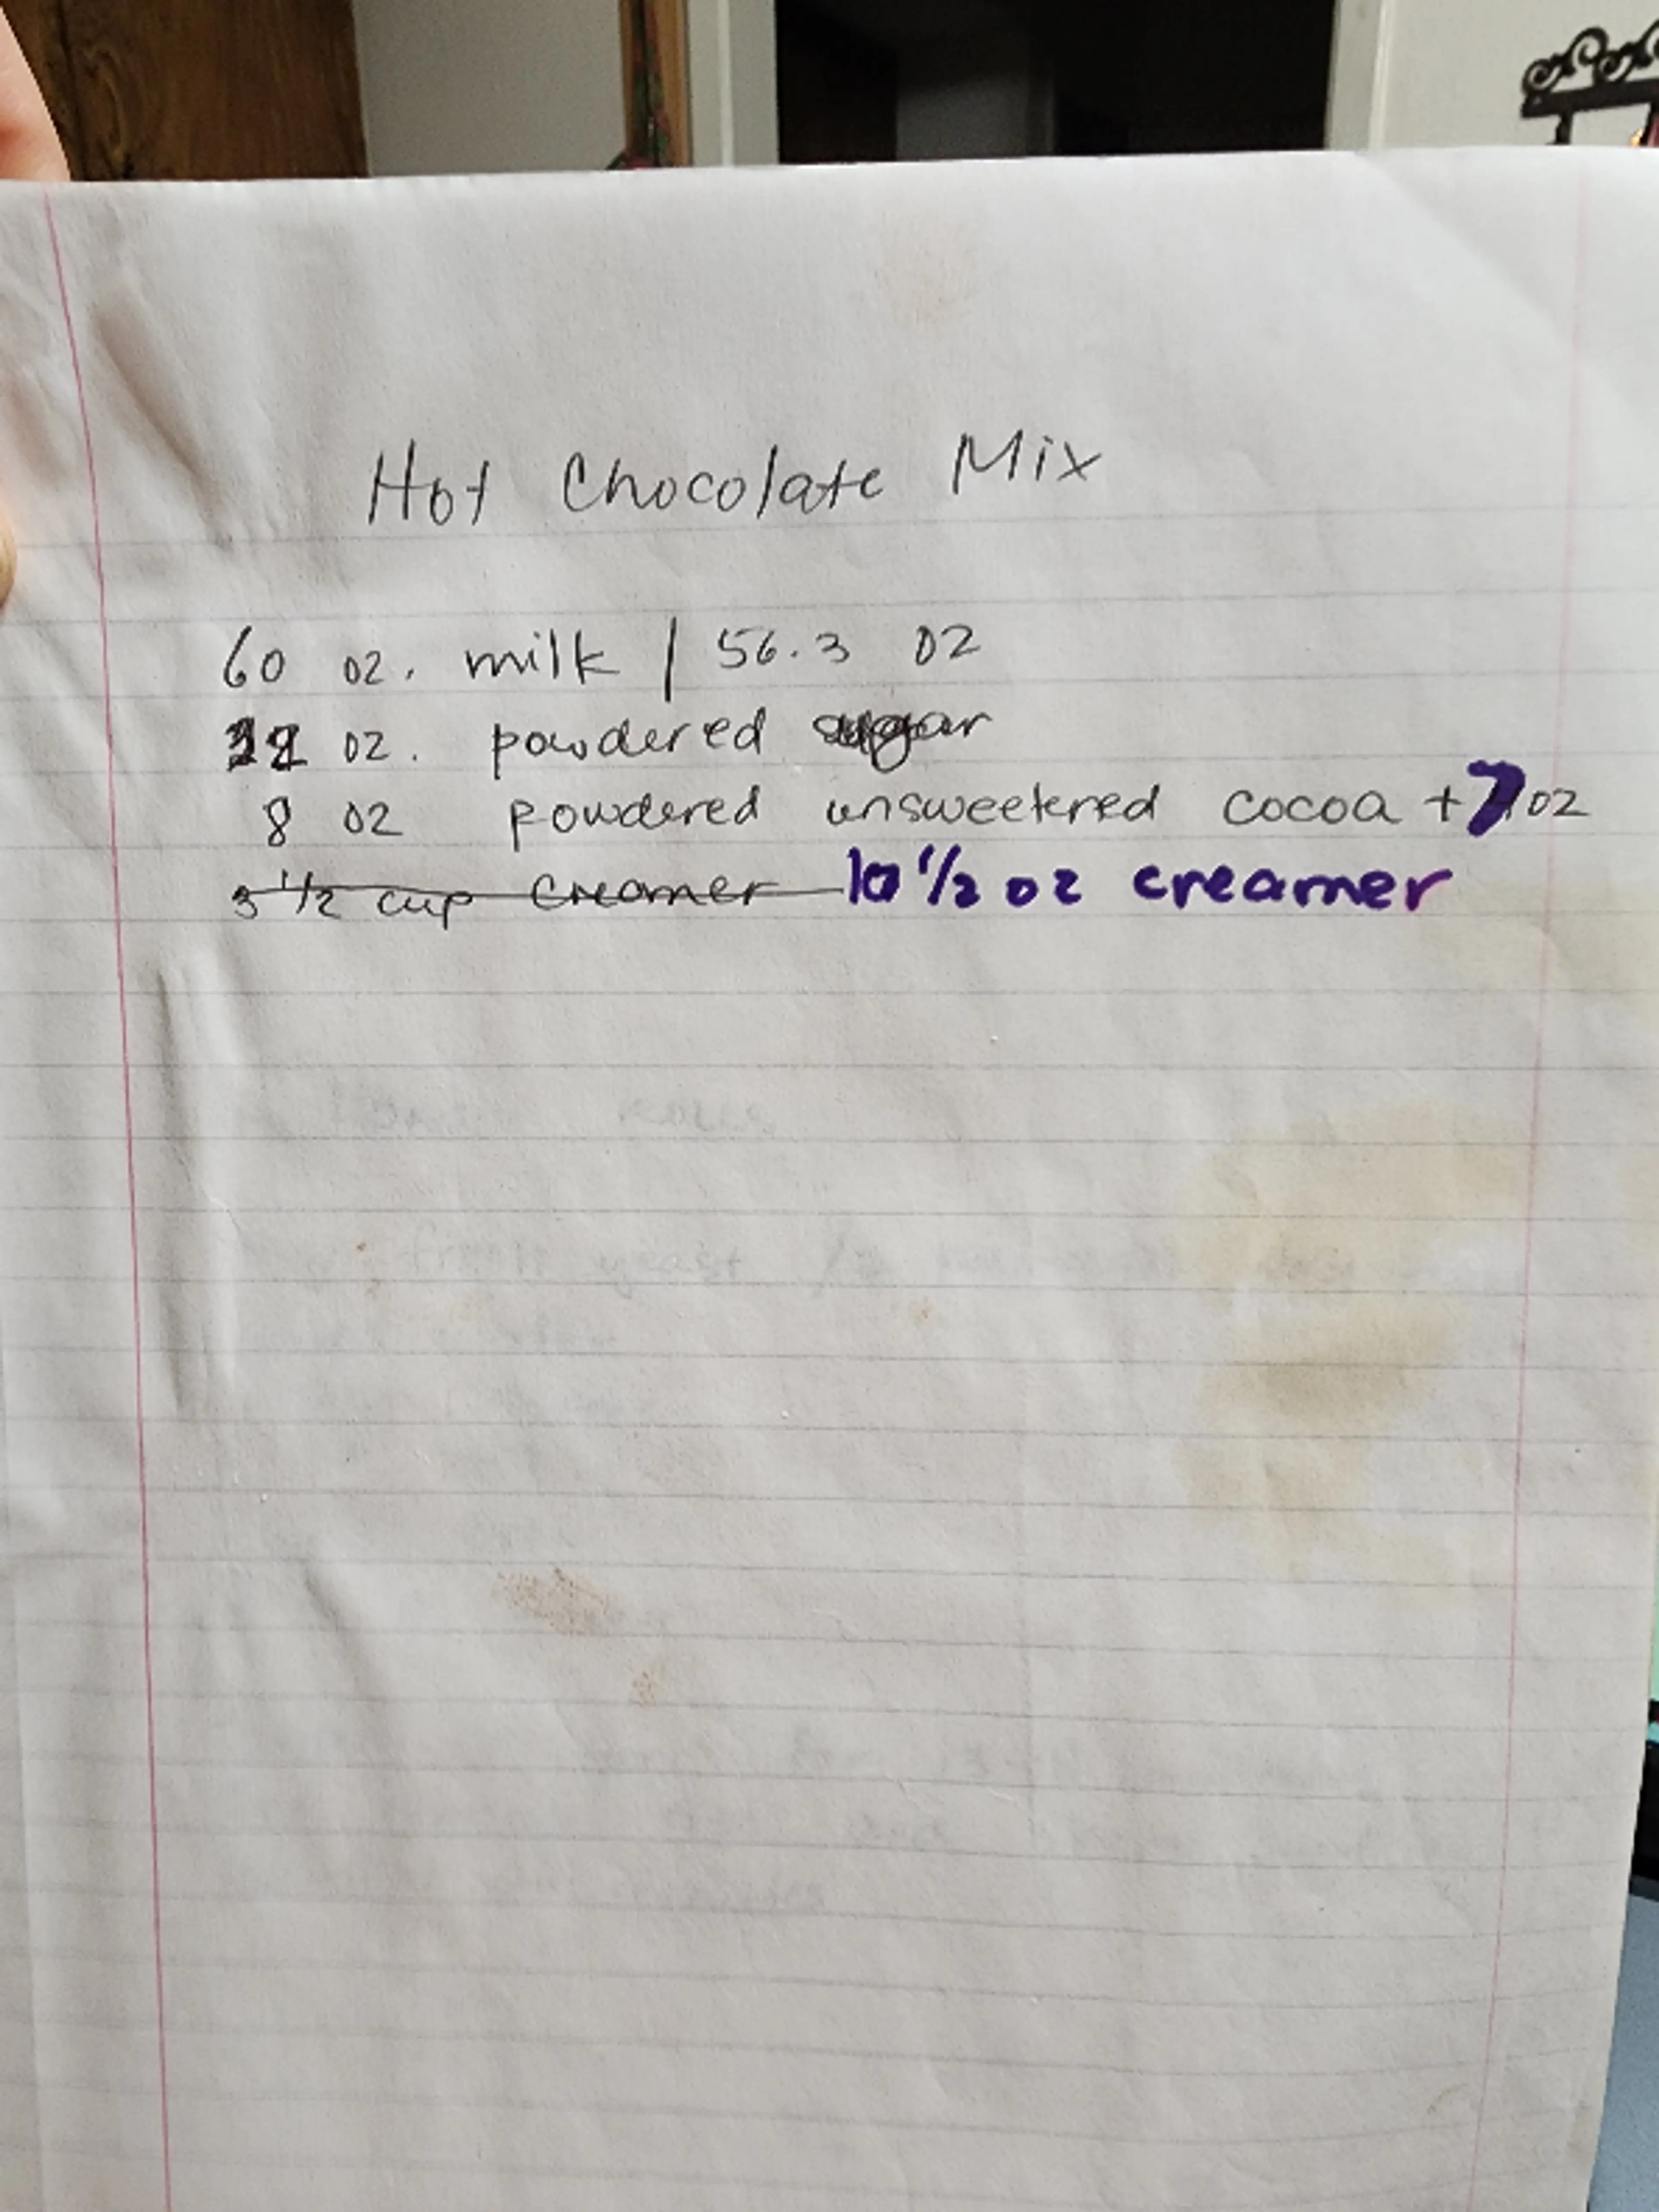 Hot Chocolate Mix
60 oz. milk | 56.3 oz
oz. powdered sugar
8 oz powdered unsweetened cocoa + 7 oz
3 1/2 cup creamer 10 1/2 oz creamer